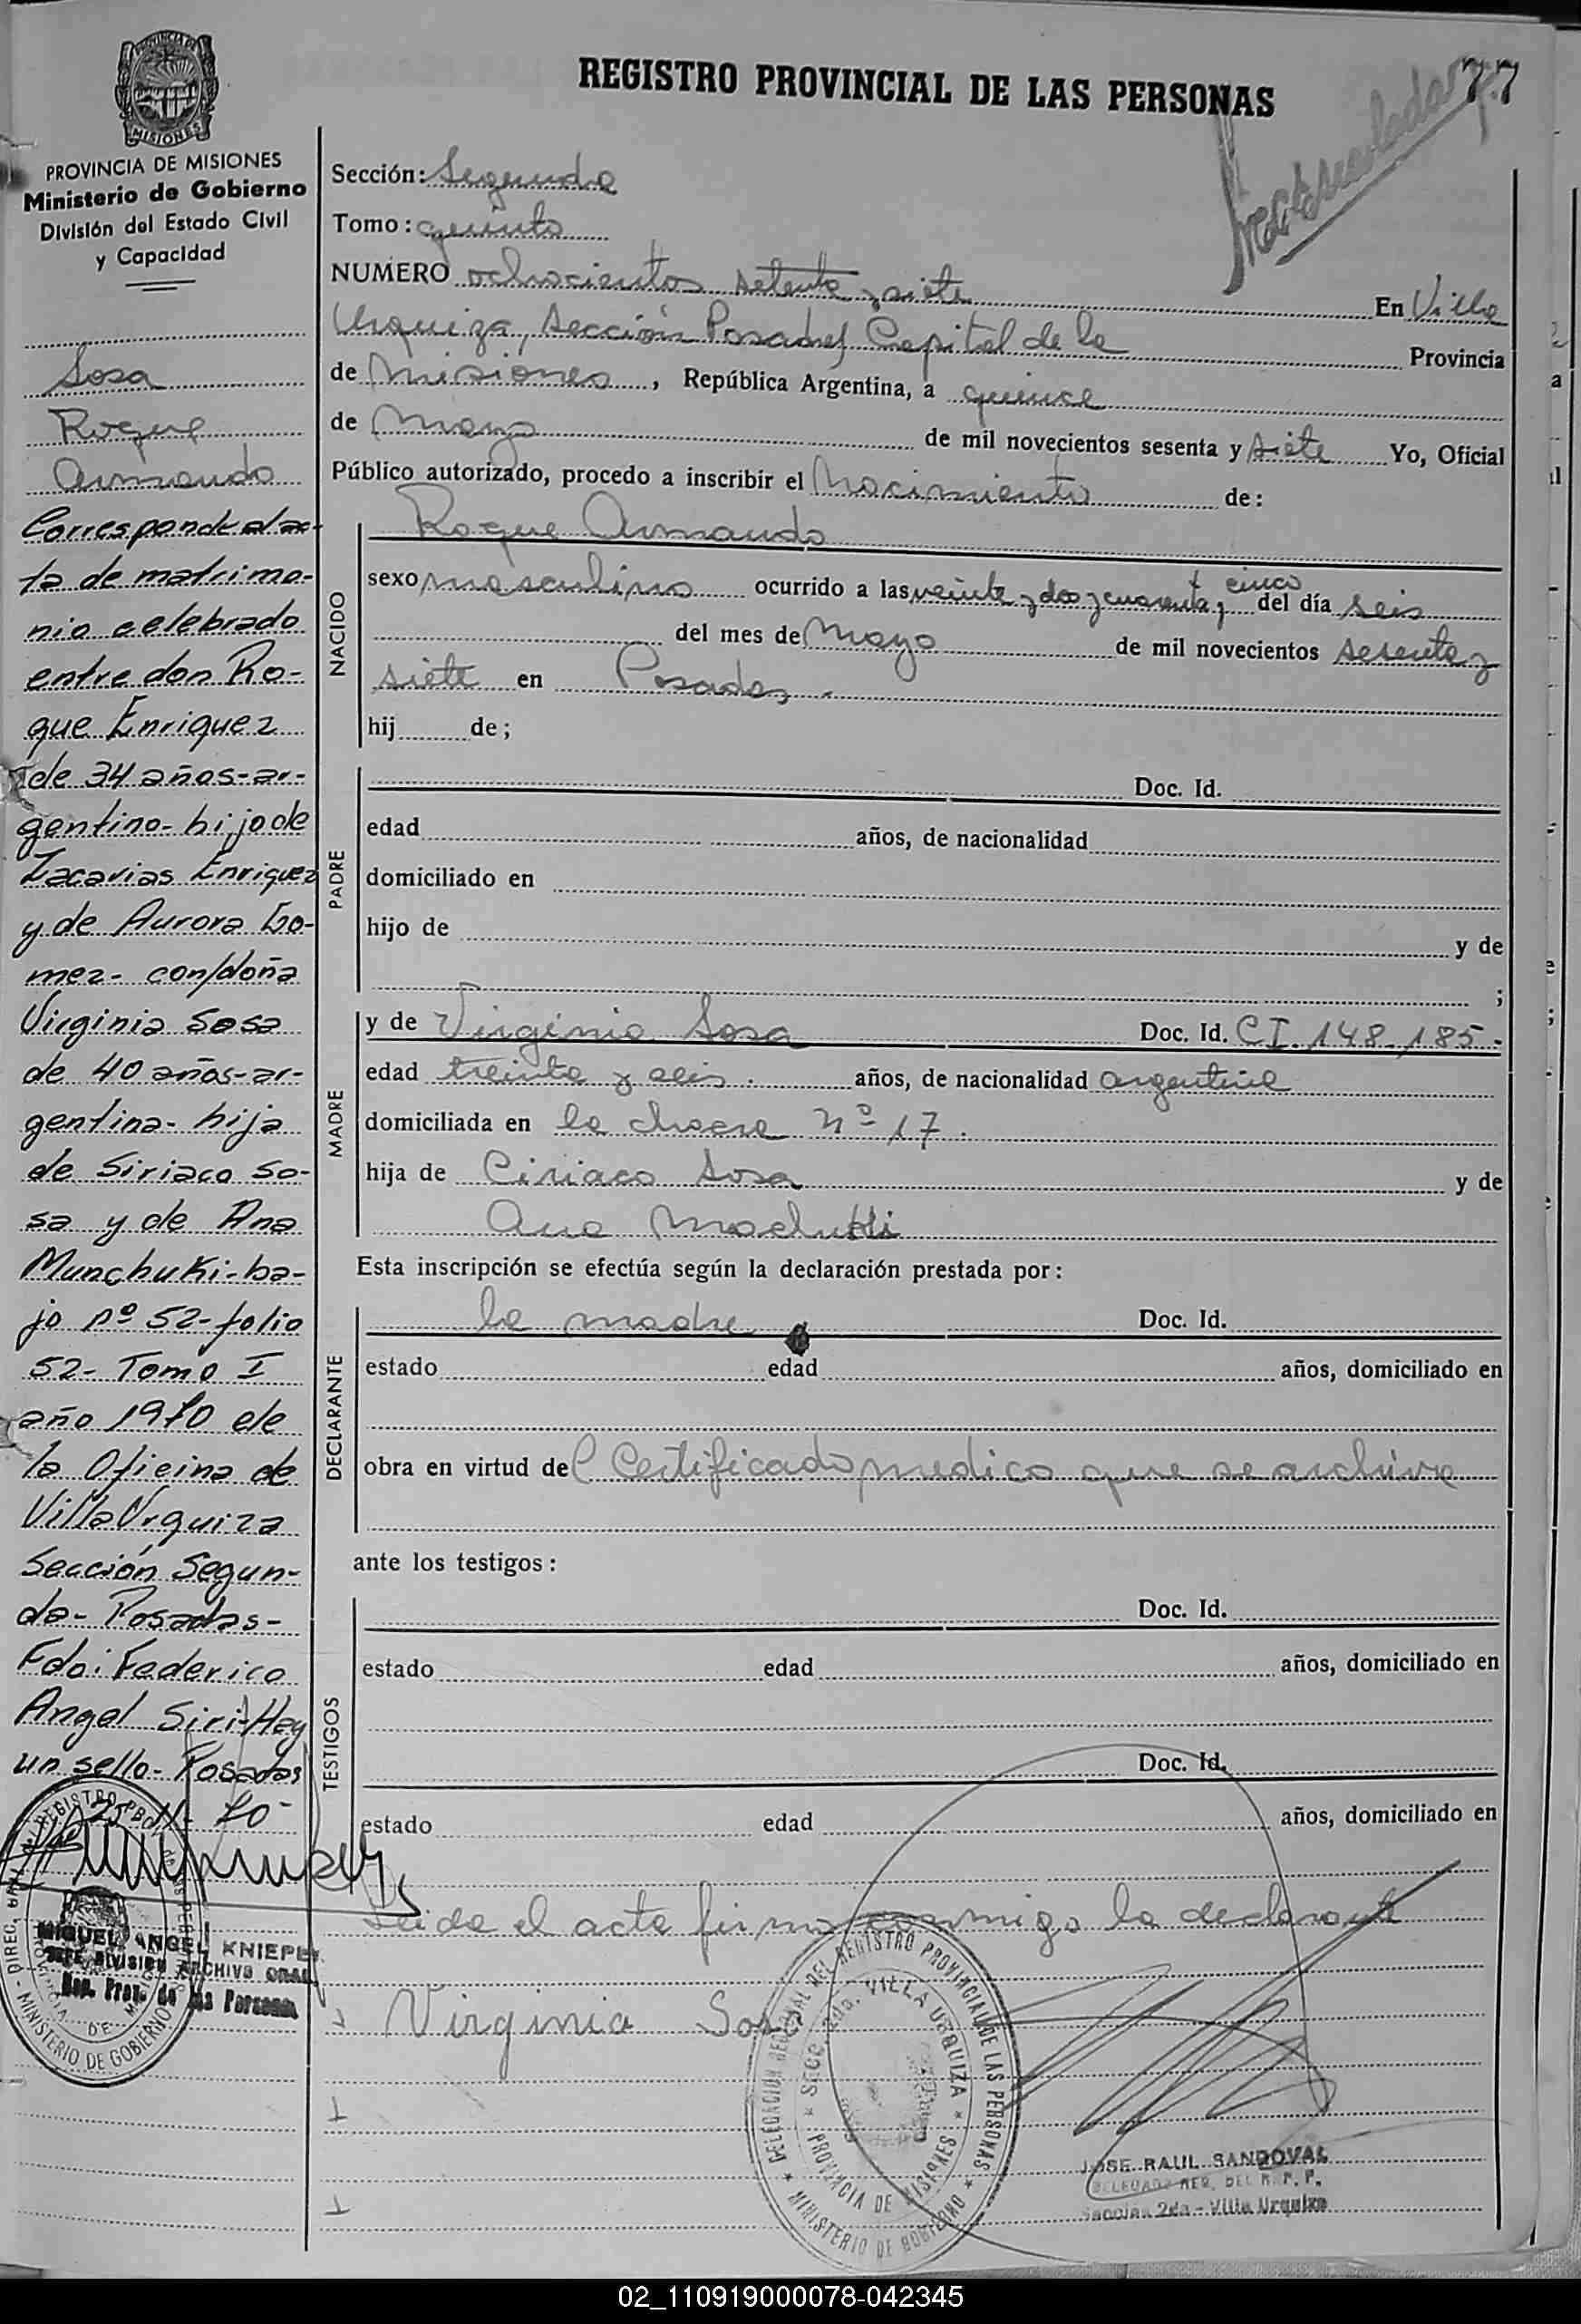 REGISTRO PROVINCIAL DE LAS PERSONAS
77
MISIONES
PROVINCIA DE MISIONES
Ministerio de Gobierno
División del Estado Civil
y Capacidad
Sosa
Roque
Armando
Corresponde al ac-
ta de matrimo-
nio celebrado
entre don Ro-
que Enriquez
de 34 años-ar-
gentino-hijo de
Zacarias Enriquez
y de Aurora Go-
mez- con/doña
Virginia Sosa
de 40 años-ar-
gentina-hija
de Siriaco So-
sa y de Ana
Munchuki-ba-
jo nº 52-folio
52- Tomo I
año 1970 de
la Oficina de
Villa Urquiza
Sección Segun-
da- Posadas-
Fdo: Federico
Angel Siri-Hay
un sello- Posadas
25-11-70-
MIGUEL ANGEL KNIEPE
JEFE DIVISION ARCHIVO GRAL
Rep. Prov. de las Personas
MINISTERIO DE GOBIERNO
Sección: Segunda
Tomo: quinto
NUMERO ochocientos setenta y siete En Villa
Urquiza, Sección Posadas Capital de la Provincia
de Misiones, República Argentina, a quince
de Mayo de mil novecientos sesenta y siete Yo, Oficial
Público autorizado, procedo a inscribir el Nacimiento de:
NACIDO
Roque Armando
sexo masculino ocurrido a las veinte y dos y cuarenta y cinco del día seis
del mes de Mayo de mil novecientos sesenta y
siete en Posadas.
hij de;
PADRE
Doc. Id.
edad años, de nacionalidad
domiciliado en
hijo de y de
;
MADRE
y de Virginia Sosa Doc. Id. CI. 148.185.-
edad treinta y seis. años, de nacionalidad argentina
domiciliada en la chacra Nº 17.
hija de Ciriaco Sosa y de
Ana
Esta inscripción se efectúa según la declaración prestada por:
DECLARANTE
la madre Doc. Id.
estado edad años, domiciliado en
obra en virtud del Certificado medico que se archiva
ante los testigos:
TESTIGOS
Doc. Id.
estado edad años, domiciliado en
Doc. Id.
estado edad años, domiciliado en
Leida el acta firma conmigo la declarante
Virginia Sosa
DELEGACION REGIONAL DEL REGISTRO PROVINCIAL DE LAS PERSONAS
SECC. 2da. VILLA URQUIZA
PROVINCIA DE MISIONES
MINISTERIO DE GOBIERNO
JOSE RAUL SANDOVAL
DELEGADO REG. DEL R. P. P.
Sección 2da - Villa Urquiza
02_110919000078-042345